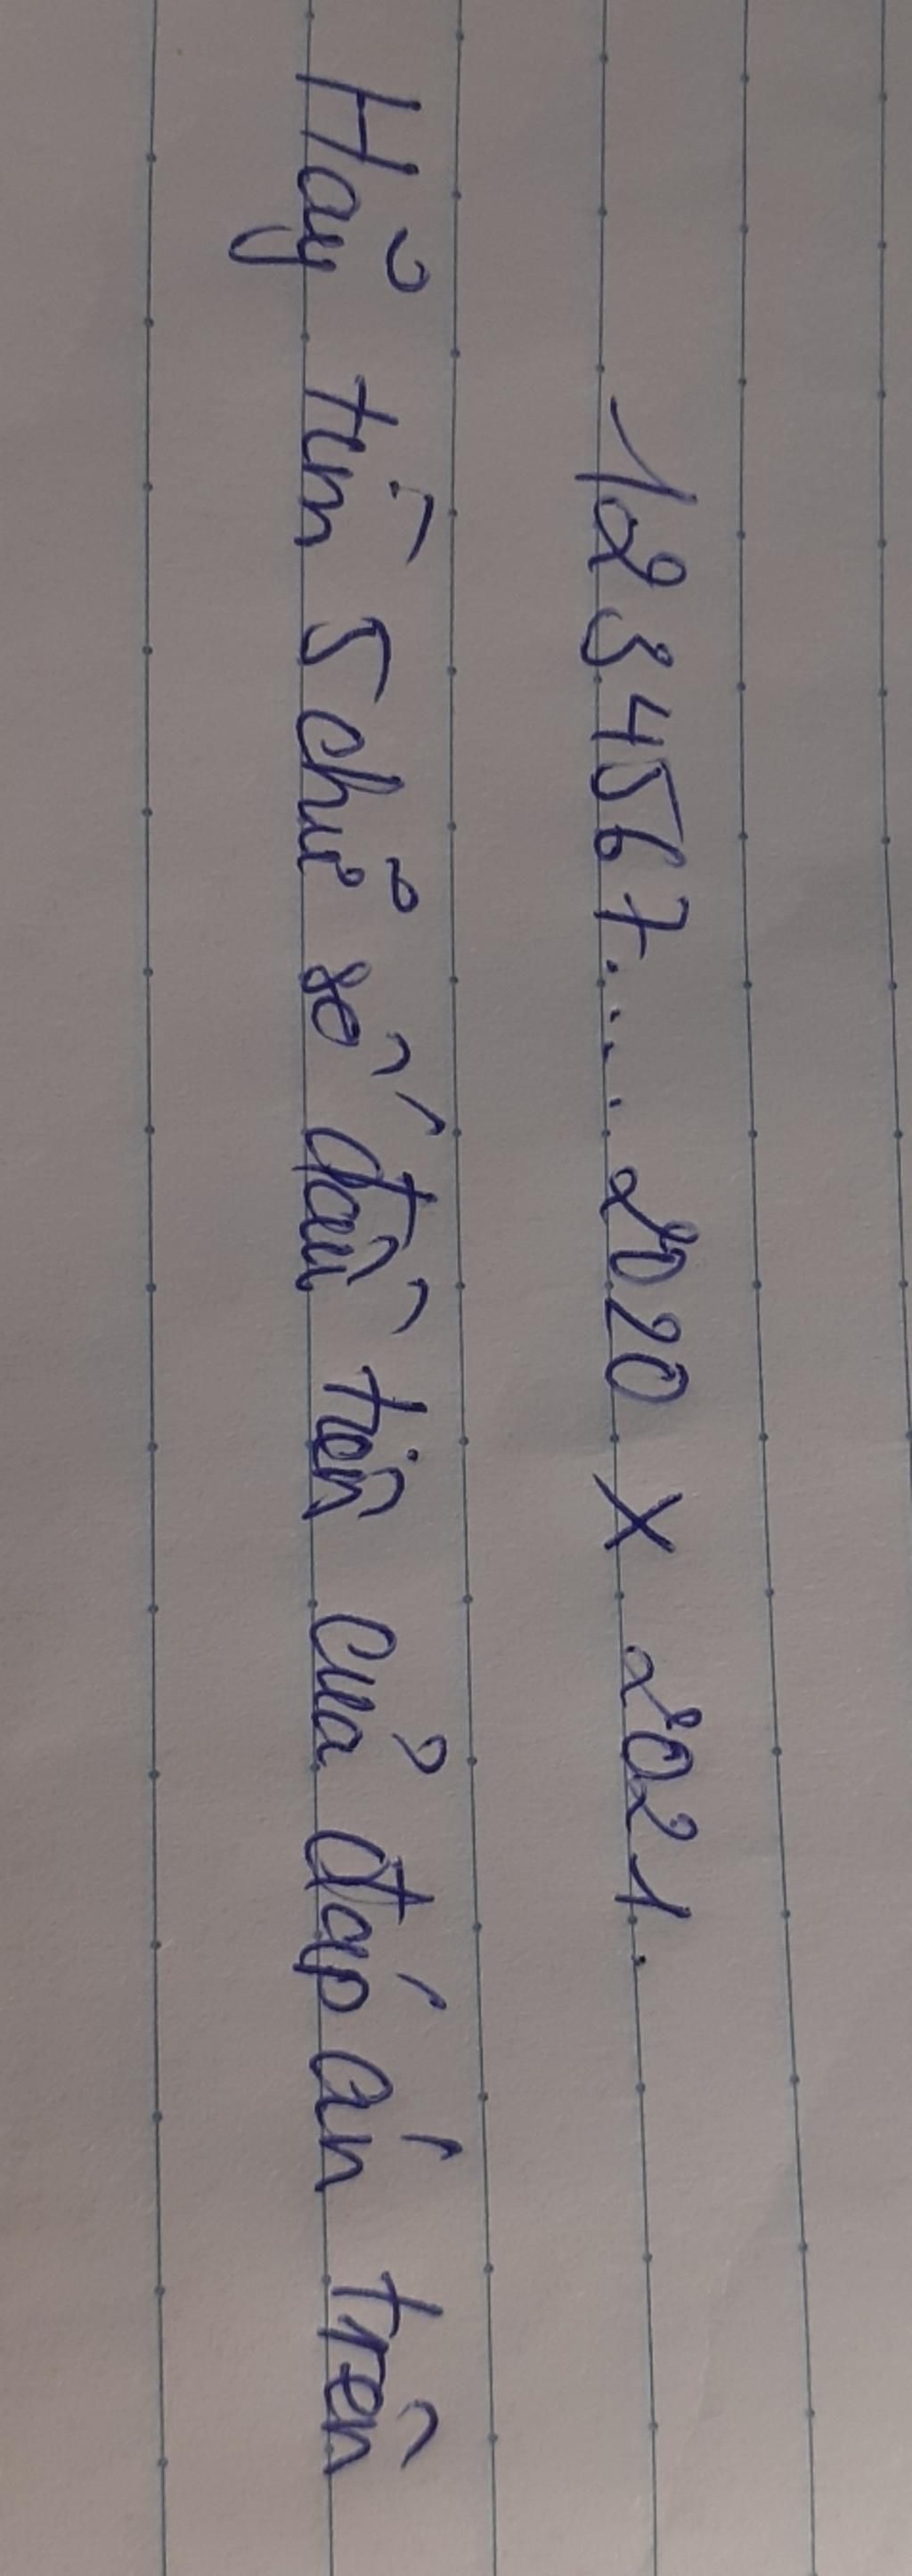 1234567.... 2020 x 2021.
Hảy tìm 5 chử số đầu tiên của đáp án trên